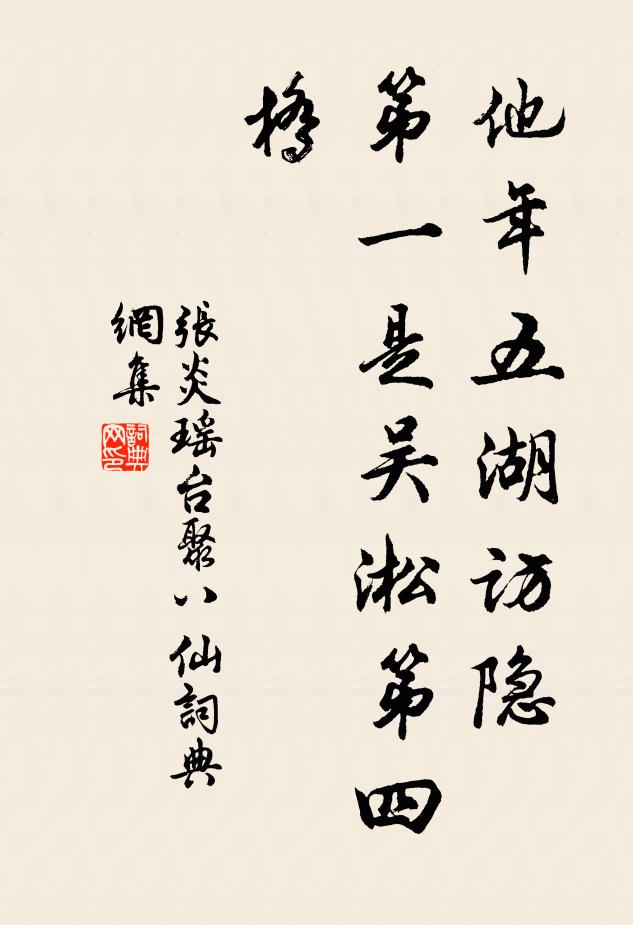 他年五湖访隐
第一是吴淞第四
橋
張炎瑶台聚八仙詞典
網集
詞典
网印